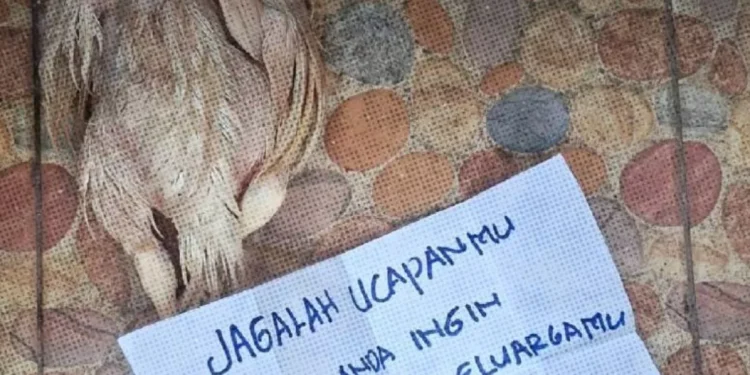 JAGALAH UCAPANMU
ANDA INGIN
KELUARGAMU